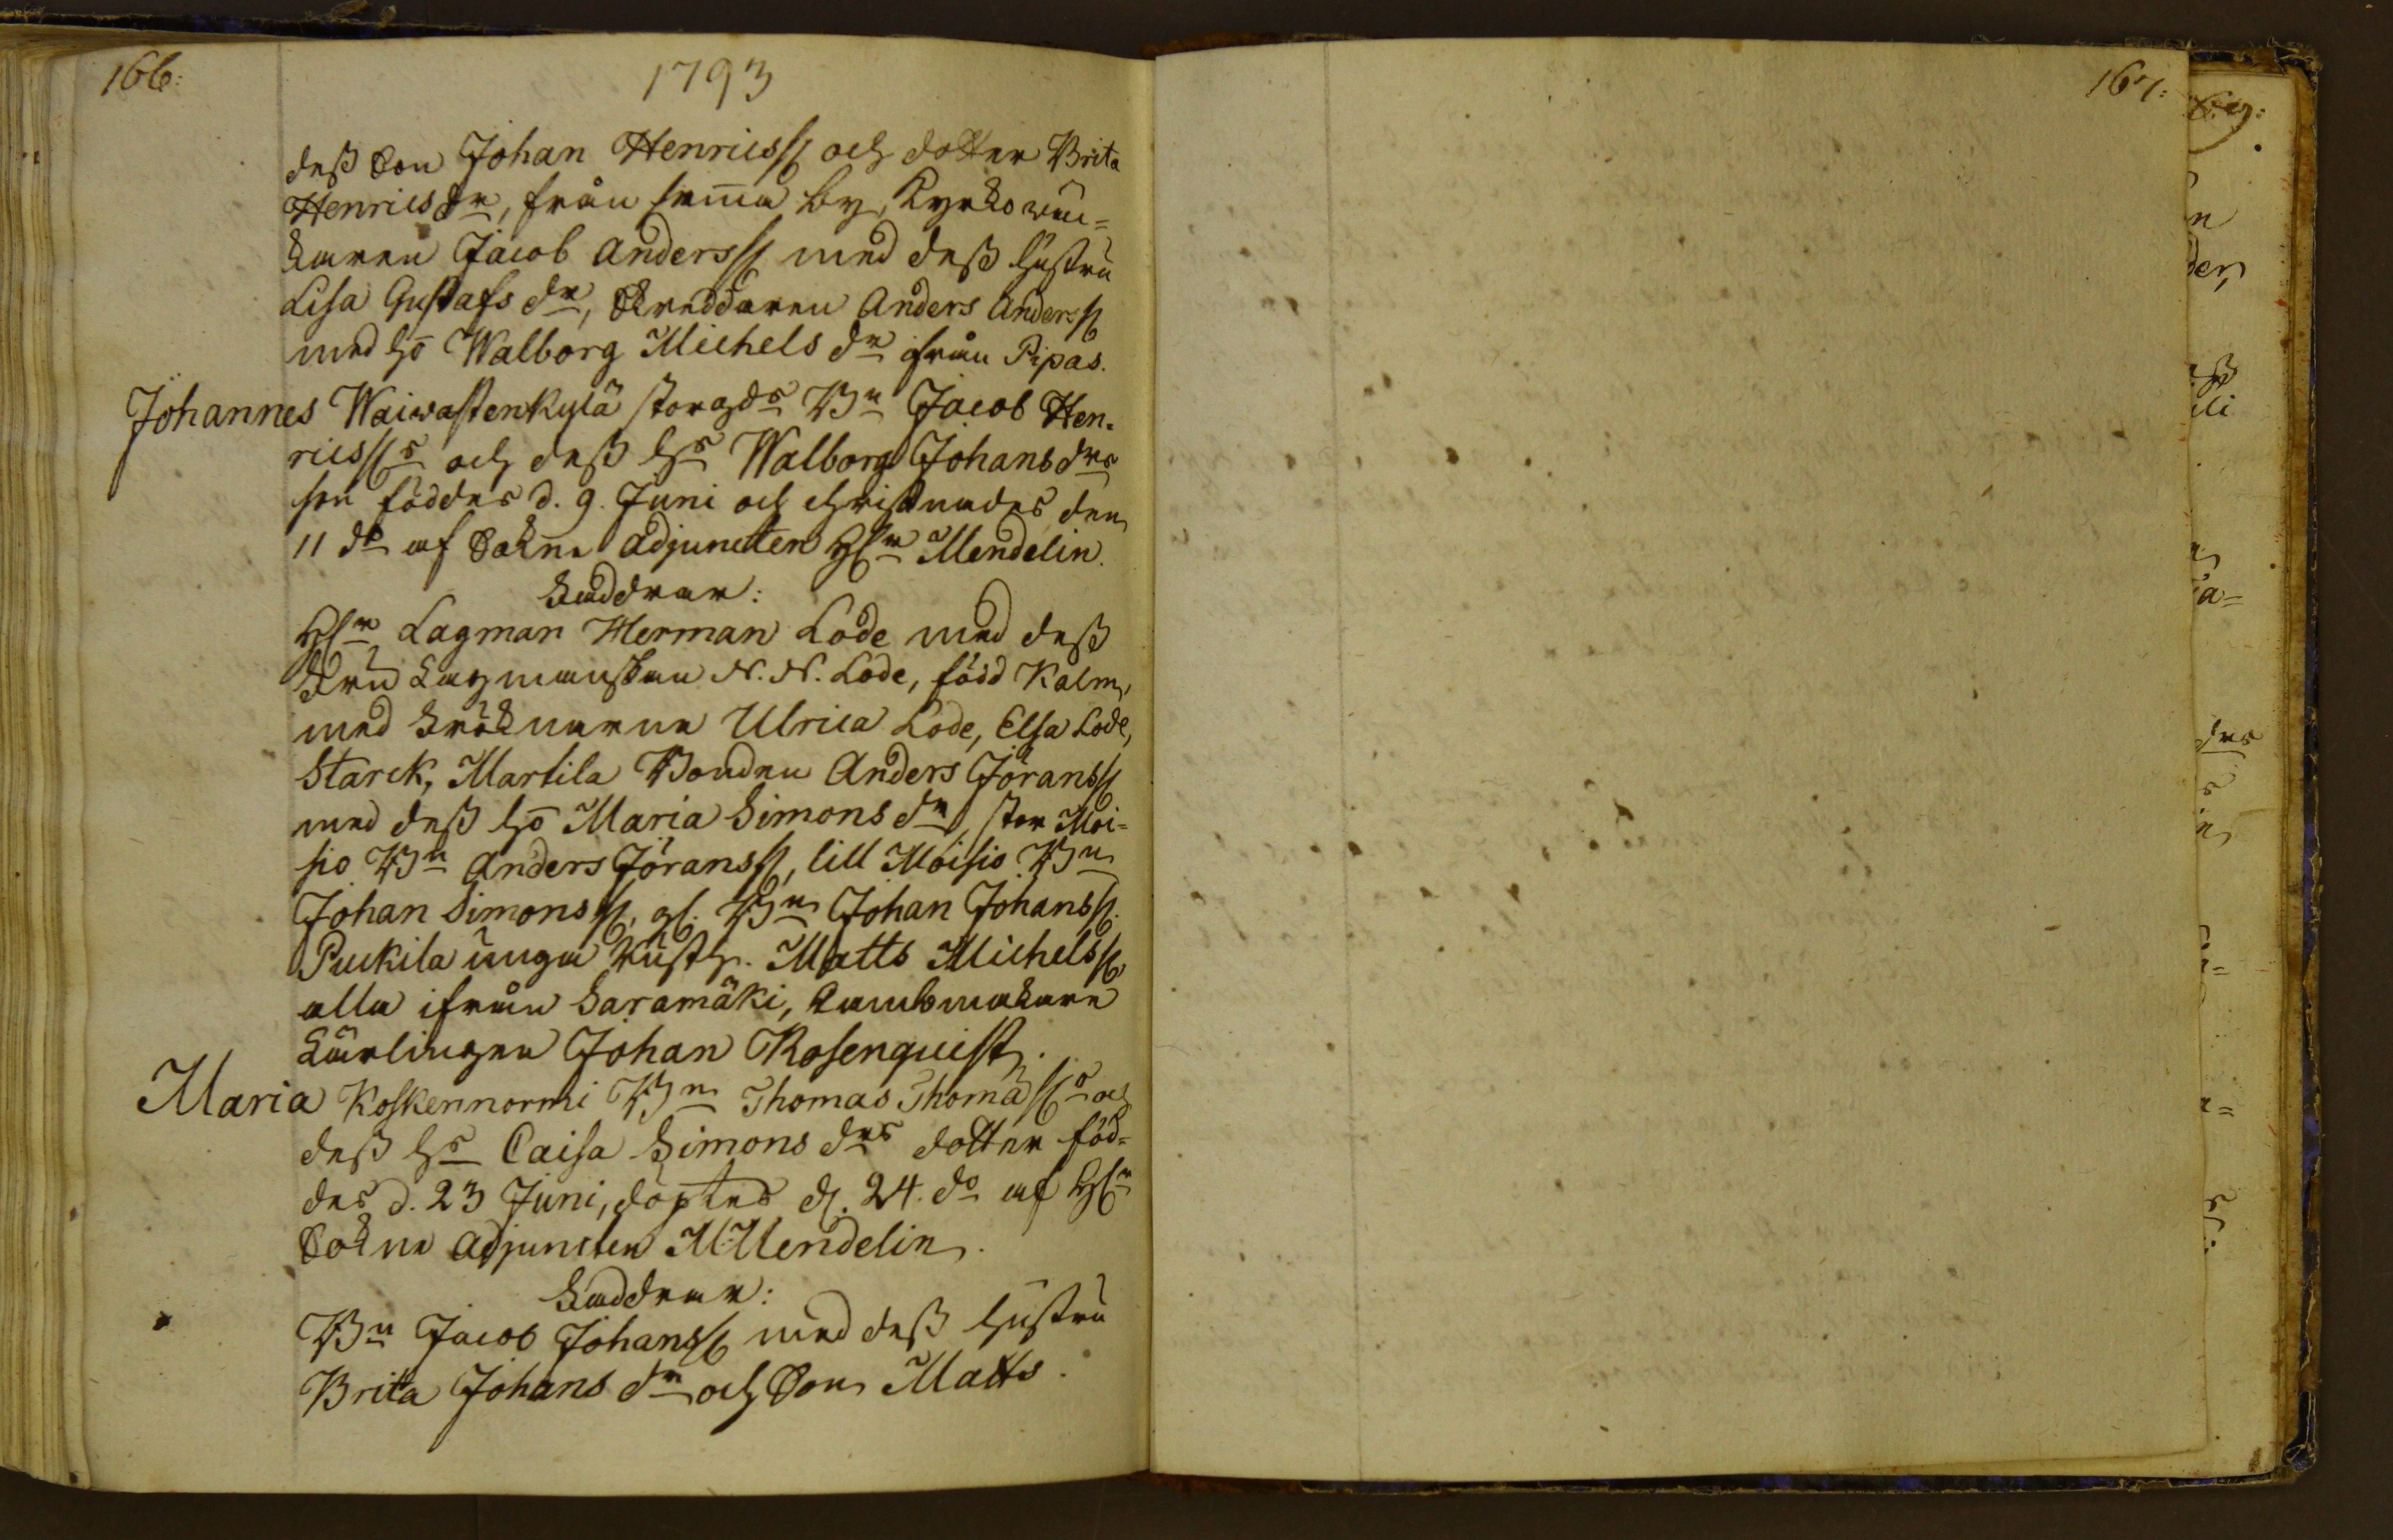 166:
1793
dess Son Johan Henricss: och dotter Brita
Henrics dr, från samma by, Kyrkowäk=
taren Jacob Anderss: med dess hustru
Lisa Gustafs dr, Skreddaren Anders Anderss:
med ho Walborg Michels dr ifrån Pipas.
Johannes Waiwastenkylä storgds Bn Jacob Hen=
ricss:s och dess hs Walborg Johans drs
son föddes d. 9. Juni och christnades den
11 do af Sokne Adjuncten Hr Mendelin.
Faddrar:
Hr Lagman Herman Lode med dess
Fru Lagmanskan N. N. Lode, född Kalm,
med Fröknarne Ulrica Lode, Elsa Lode,
Starck, Martila Bonden Anders Jöranss:
med dess ho Maria Simons dr, stor Moi=
sio Bn Anders Jöranss:, lill Moisio Bn
Johan Simonss:, gl. Bn Johan Johanss:
Puckila unga Rusth. Matts Michelss:
alla ifrån Saramäki, Kambmakare
Lärlingen Johan Rosenquist.
Maria Koskennormi Bn Thomas Thomæss:s och
dess hs Caisa Simons drs dotter föd=
des d. 23 Juni, döptes d. 24. do af Hr
Sokne Adjuncten M. Mendelin.
Faddrar:
Bn Jacob Johanss: med dess hustru
Brita Johans dr och Son Matts.
167: